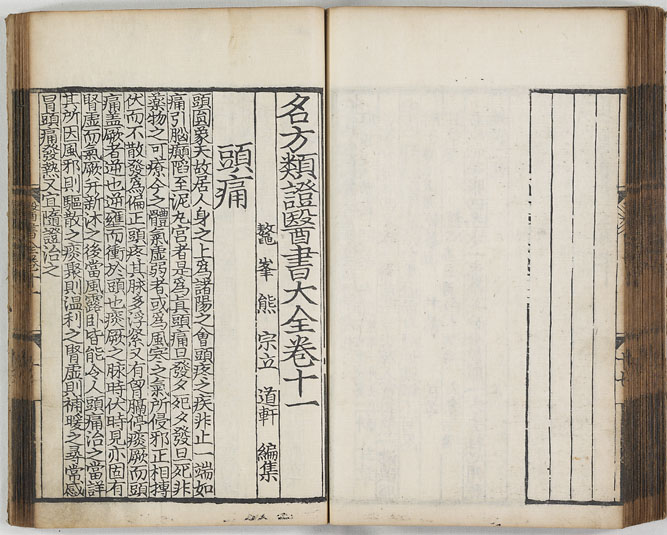 名方類證醫書大全卷十一
鼇峯熊宗立道軒編集
頭痛
頭圓象天故居人身之上爲諸陽之會頭疼之疾非止一端如
痛引腦巔陷至泥丸宮者是爲眞頭痛旦發夕死夕發旦死非
藥物之可療今之體氣虛弱者或爲風寒之氣所侵邪正相摶
伏而不散發爲偏正頭疼其脉多浮緊又有胷膈停痰厥而頭
痛盖厥者逆也逆壅而衝於頭也痰厥之脉時伏時見亦因有
腎虛而氣厥幷新沐之後當風露卧皆能令人頭痛治之當詳
其所因風邪則驅散之痰聚則温利之腎虛則補暖之尋常感
冒頭痛發熱又宜隨證治之